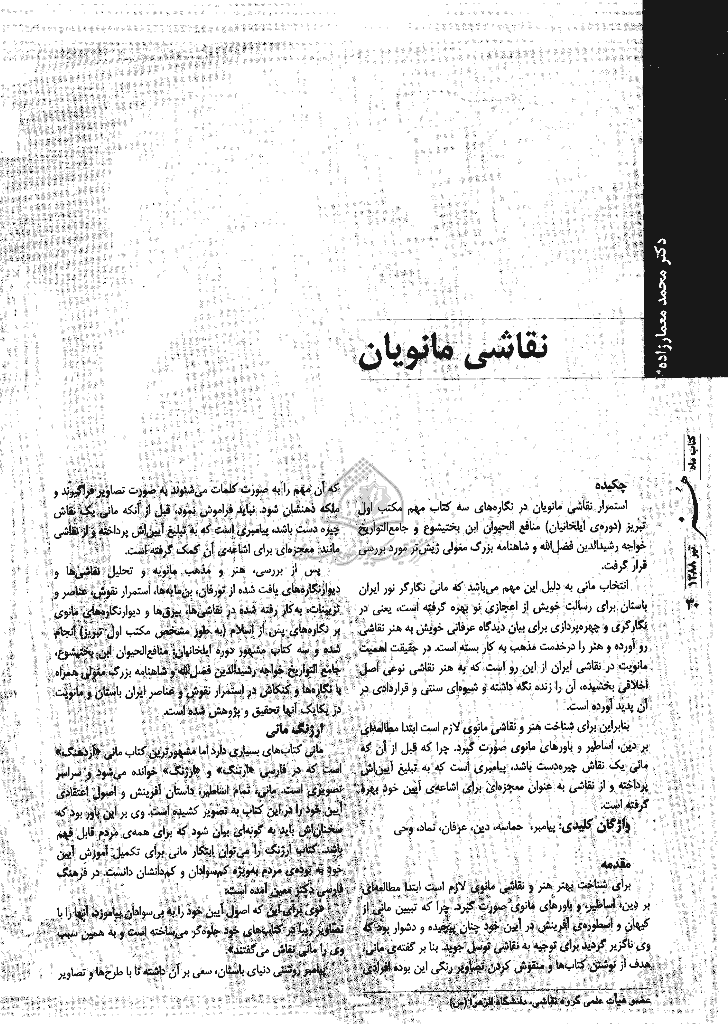 دکتر محمد معمارزاده*
نقاشی مانویان
کتاب ماه
هنر
تیر ۱۳۸۸
۴۰
چکیده
استمرار نقاشی مانویان در نگاره‌های سه کتاب مهم مکتب اول
تبریز (دوره‌ی ایلخانیان) منافع الحیوان ابن بختیشوع و جامع‌التواریخ
خواجه رشیدالدین فضل‌الله و شاهنامه بزرگ مغولی پیش‌تر مورد بررسی
قرار گرفت.
انتخاب مانی به دلیل این مهم می‌باشد که مانی نگارگر نور ایران
باستان برای رسالت خویش از اعجازی نو بهره گرفته است، یعنی در
نگارگری و چهره‌پردازی برای بیان دیدگاه عرفانی خویش به هنر نقاشی
رو آورده و هنر را در خدمت مذهب به کار بسته است. در حقیقت اهمیت
مانویت در نقاشی ایران از این رو است که به هنر نقاشی نوعی اصل
اخلاقی بخشیده، آن را زنده نگه داشته و شیوه‌ای سنتی و قراردادی در
آن پدید آورده است.
بنابراین برای شناخت هنر و نقاشی مانوی لازم است ابتدا مطالعه‌ای
بر دین، اساطیر و باورهای مانوی صورت گیرد. چرا که قبل از آن که
مانی یک نقاش چیره‌دست باشد، پیامبری است که به تبلیغ آیین‌اش
پرداخته و از نقاشی به عنوان معجزه‌ای برای اشاعه‌ی آیین خود بهره
گرفته است.
واژگان کلیدی: پیامبر، حماسه، دین، عرفان، نماد، وحی
مقدمه
برای شناخت بهتر هنر و نقاشی مانوی لازم است ابتدا مطالعه‌ای
بر دین، اساطیر، و باورهای مانوی صورت گیرد. چرا که تبیین مانی از
کیهان و اسطوره‌ی آفرینش در آیین خود چنان پیچیده و دشوار بود که
وی ناگزیر گردید برای توجیه به نقاشی توسل جوید. بنا بر گفته‌ی مانی،
هدف از نوشتن کتاب‌ها و منقوش کردن تصاویر رنگی این بوده افرادی
که آن مهم را به صورت کلمات می‌شنوند به صورت تصاویر فراگیرند و
ملکه ذهنشان شود. نباید فراموش نمود، قبل از آنکه مانی یک نقاش
چیره دست باشد، پیامبری است که به تبلیغ آیین‌اش پرداخته و از نقاشی
مانند معجزه‌ای برای اشاعه‌ی آن کمک گرفته است.
پس از بررسی، هنر و مذهب مانویه و تحلیل نقاشی‌ها و
دیوارنگاره‌های یافت شده از تورفان، بن‌مایه‌ها، استمرار نقوش، عناصر و
تزیینات، به‌کار رفته شده در نقاشی‌ها، بیرق‌ها و دیوارنگاره‌های مانوی
بر نگاره‌های پس از اسلام (به طور مشخص مکتب اول تبریز) انجام
شده و سه کتاب مشهور دوره ایلخانیان: منافع‌الحیوان ابن بختیشوع،
جامع التواریخ خواجه رشیدالدین فضل‌الله و شاهنامه بزرگ مغولی همراه
با نگاره‌ها و کنکاش در استمرار نقوش و عناصر ایران باستان و مانویت
در یکایک آنها تحقیق و پژوهش شده است.
ارژنگ مانی
مانی کتاب‌های بسیاری دارد اما مشهورترین کتاب مانی «اردهنگ»
است که در فارسی «ارتنگ» و «ارژنگ» خوانده می‌شود و سراسر
تصویری است. مانی، تمام اساطیر، داستان آفرینش و اصول اعتقادی
آیین خود را در این کتاب به تصویر کشیده است. وی بر این باور بود که
سخنانش باید به گونه‌ای بیان شود که برای همه‌ی مردم قابل فهم
باشد. کتاب ارژنگ را می‌توان ابتکار مانی برای تکمیل آموزش آیین
خود به توده‌ی مردم به‌ویژه کم‌سوادان و کم‌دانشان دانست. در فرهنگ
فارسی دکتر معین آمده است:
«وی برای این که اصول آیین خود را به بی‌سوادان بیاموزد، آنها را با
تصاویر زیبا در کتاب‌های خود جلوه‌گر می‌ساخته است و به همین سبب
وی را مانی نقاش می‌گفتند».
پیامبر روشنی دنیای باستان، سعی بر آن داشته تا با طرح‌ها و تصاویر
عضو هیأت علمی گروه نقاشی، دانشگاه الزهرا (س)